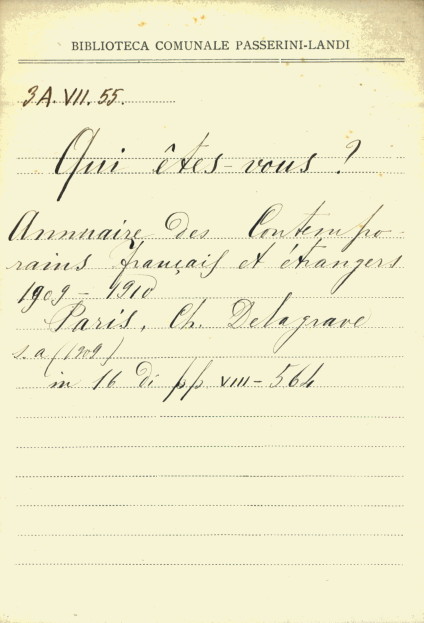 BIBLIOTECA COMUNALE PASSERINI-LANDI
3A. VII. 55.
Qui êtes-vous?
Annuaire des Contempo-
rains français et étrangers
1909 - 1910
Paris, Ch. Delagrave
s. a (1909)
in 16 di pp VIII - 564